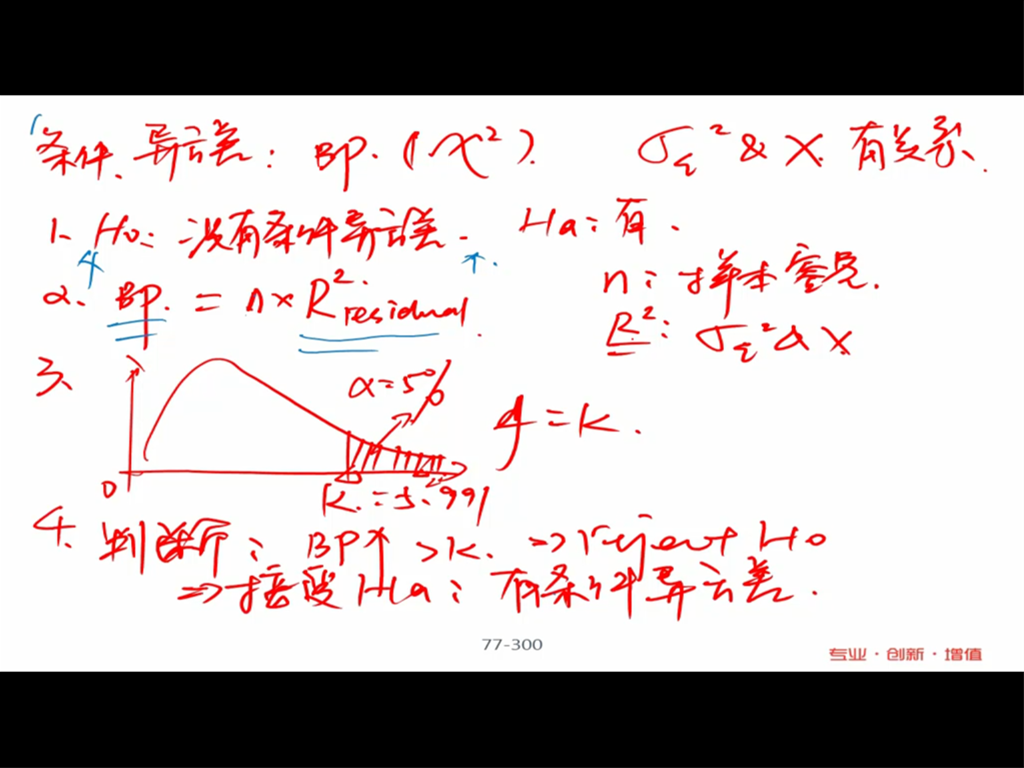 条件异方差: BP. (χ²). σε² & X 有关系.
1. H0: 没有条件异方差. Ha: 有.
2. BP. = n × R² residual. n: 样本容量.
R²: σε² & X
3、
α=5%
df = K.
0 K.=5.991
4. 判断: BP↑ > K. => reject H0
=> 接受 Ha: 有条件异方差.
77-300
专业·创新·增值